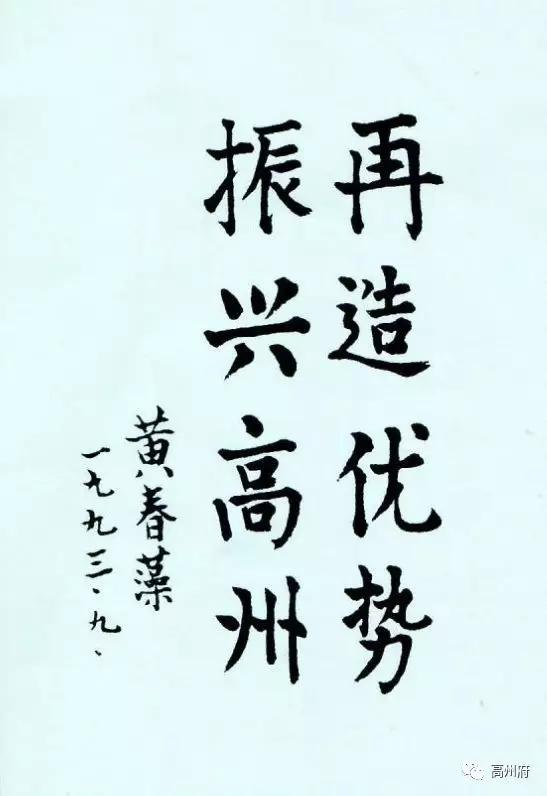 再造优势
振兴高州
黄春藻
一九九三·九·
高州府